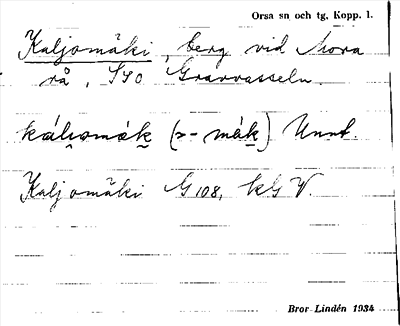 Orsa sn och tg, Kopp. l.
Kaljomäki, berg vid Mora
rå, SSO Gravvasseln.
káljomäk (~-mäk) Unnt.
Kaljomäki G 108, kG V.
Bror Lindén 1934